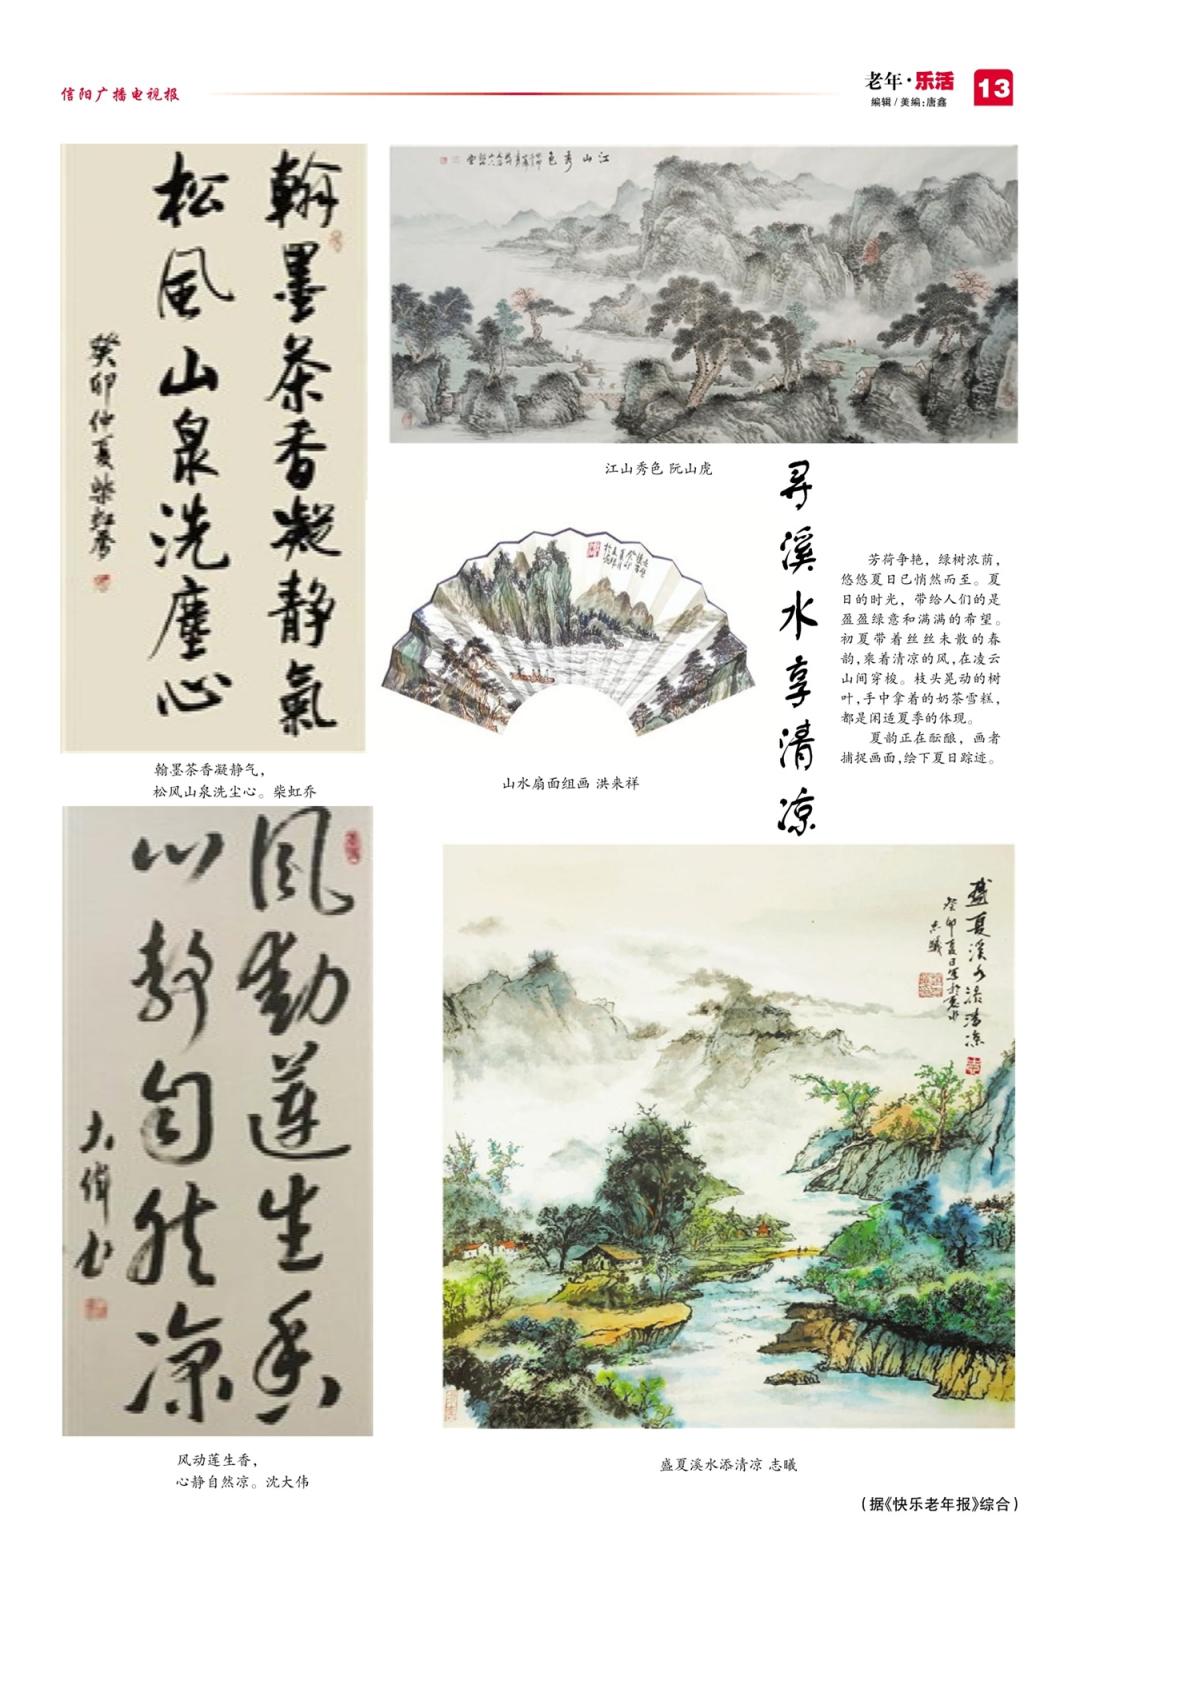 信阳广播电视报
老年·乐活
编辑/美编:唐鑫
13
翰墨茶香凝静氣
松風山泉洗塵心
癸卯仲夏柴虹乔
翰墨茶香凝静气，
松风山泉洗尘心。柴虹乔
江山秀色
江山秀色 阮山虎
山水扇面组画 洪来祥
寻溪水享清凉
芳荷争艳，绿树浓荫，
悠悠夏日已悄然而至。夏
日的时光，带给人们的是
盈盈绿意和满满的希望。
初夏带着丝丝未散的春
韵,乘着清凉的风,在凌云
山间穿梭。枝头晃动的树
叶,手中拿着的奶茶雪糕,
都是闲适夏季的体现。
夏韵正在酝酿，画者
捕捉画面,绘下夏日踪迹。
风动莲生香
心静自然凉
大伟书
风动莲生香，
心静自然凉。沈大伟
盛夏溪水添清凉
癸卯夏日写于惠水
志曦
盛夏溪水添清凉 志曦
(据《快乐老年报》综合)